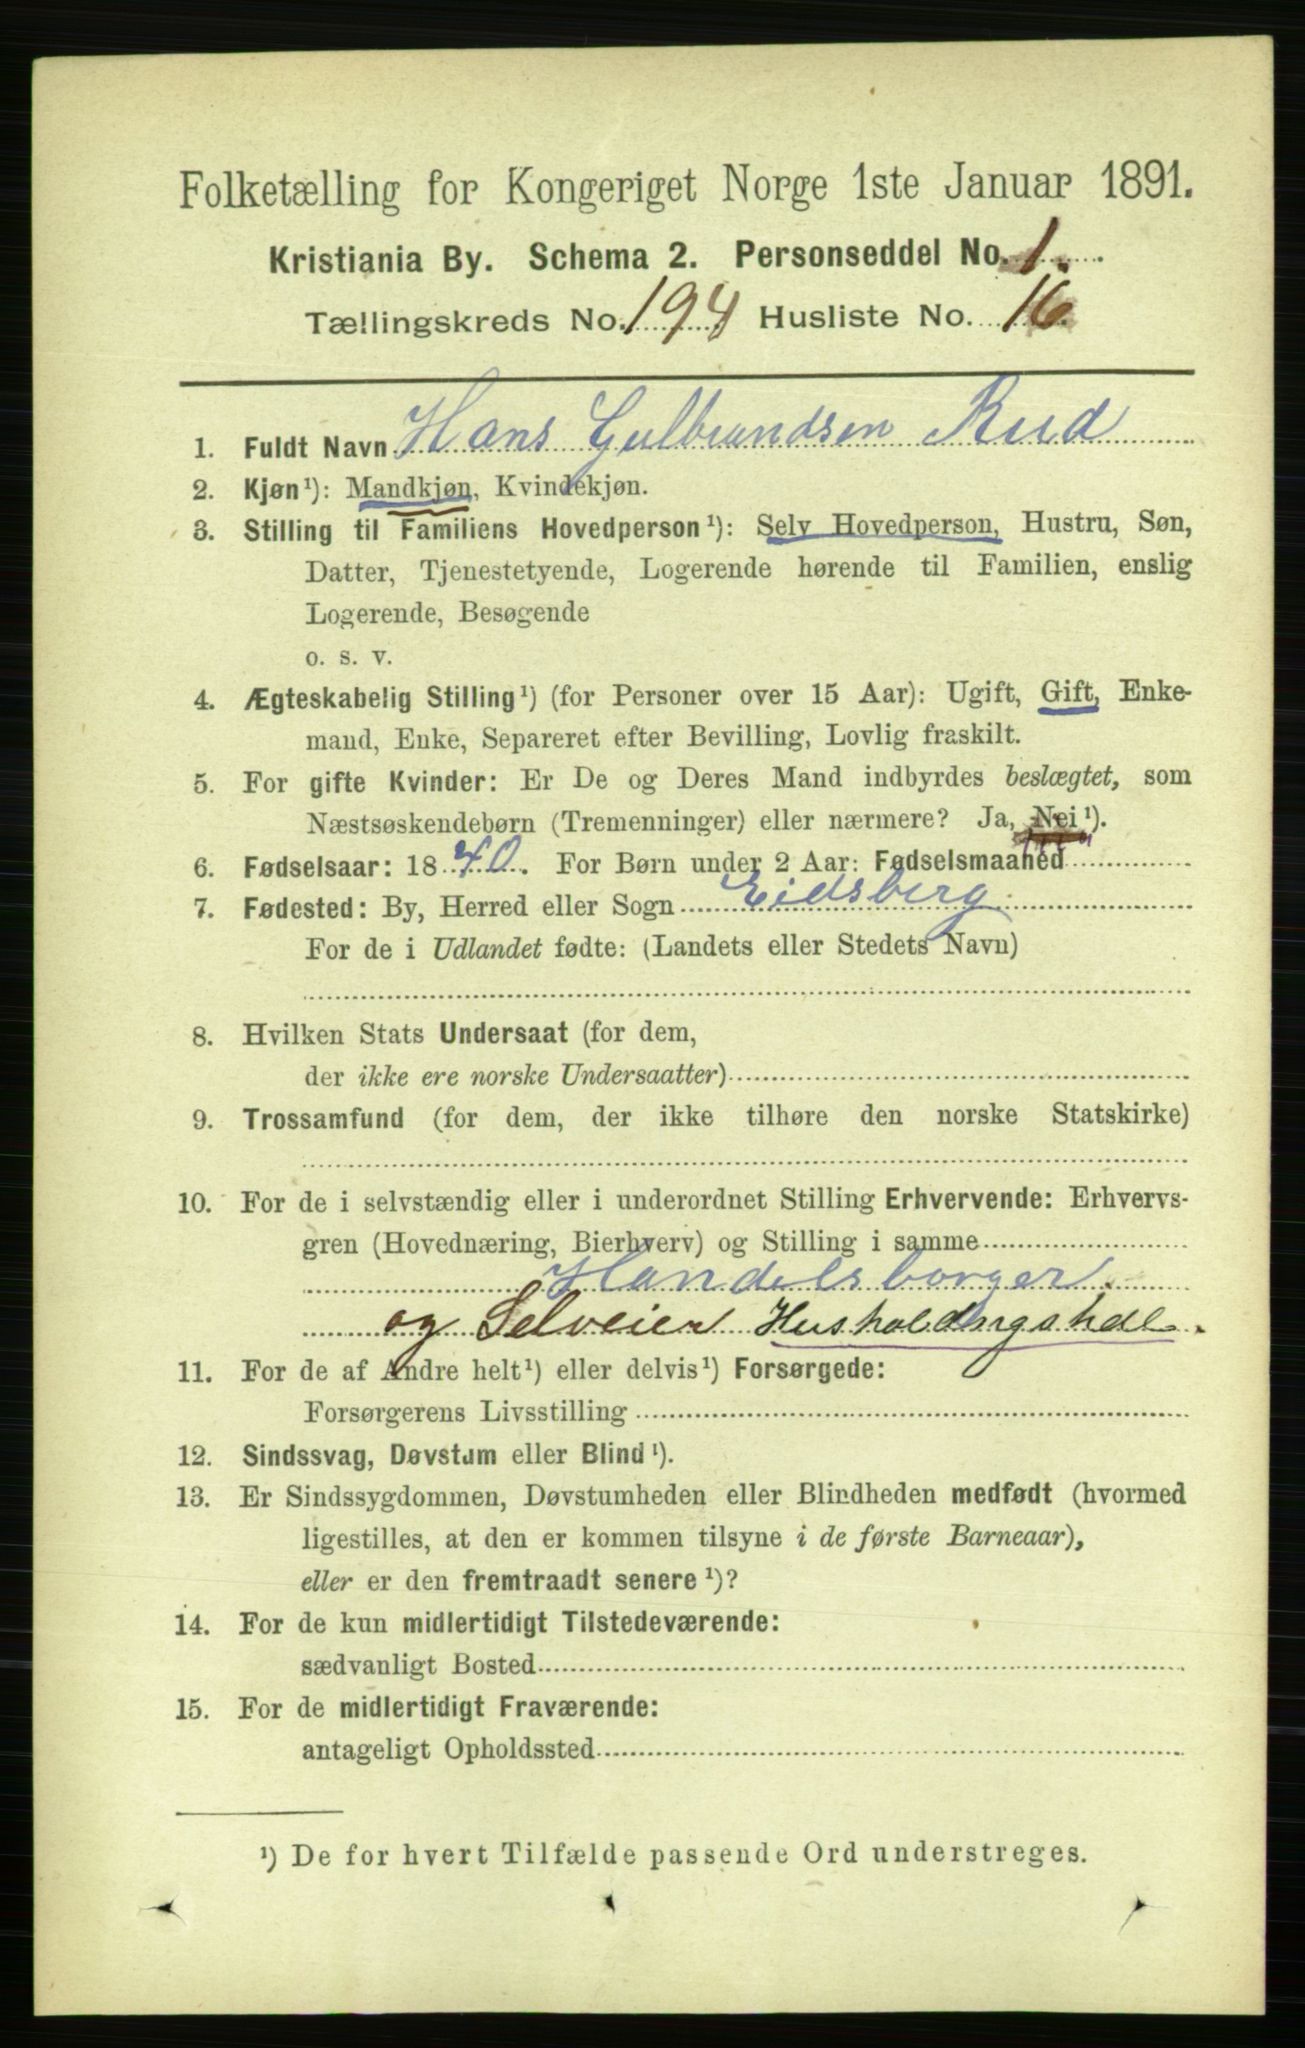 Folketælling for Kongeriget Norge 1ste Januar 1891.
Kristiania By. Schema 2. Personseddel No. 1.
Tællingskreds No. 194 Husliste No. 16.
1. Fuldt Navn Hans Gulbrandsen Rud
2. Kjøn¹): Mandkjøn, Kvindekjøn.
3. Stilling til Familiens Hovedperson¹): Selv Hovedperson, Hustru, Søn,
Datter, Tjenestetyende, Logerende hørende til Familien, enslig
Logerende, Besøgende
o. s. v.
4. Ægteskabelig Stilling¹) (for Personer over 15 Aar): Ugift, Gift, Enke-
mand, Enke, Separeret efter Bevilling, Lovlig fraskilt.
5. For gifte Kvinder: Er De og Deres Mand indbyrdes beslægtet, som
Næstsøskendebørn (Tremenninger) eller nærmere? Ja, Nei¹).
6. Fødselsaar: 1840. For Børn under 2 Aar: Fødselsmaaned
7. Fødested: By, Herred eller Sogn Eidsberg.
For de i Udlandet fødte: (Landets eller Stedets Navn)
8. Hvilken Stats Undersaat (for dem,
der ikke ere norske Undersaatter)
9. Trossamfund (for dem, der ikke tilhøre den norske Statskirke)
10. For de i selvstændig eller i underordnet Stilling Erhvervende: Erhvervs-
gren (Hovednæring, Bierhverv) og Stilling i samme
Handelsborger.
og Selveier Husholdngshdl.
11. For de af Andre helt¹) eller delvis¹) Forsørgede:
Forsørgerens Livsstilling
12. Sindssvag, Døvstum eller Blind¹).
13. Er Sindssygdommen, Døvstumheden eller Blindheden medfødt (hvormed
ligestilles, at den er kommen tilsyne i de første Barneaar),
eller er den fremtraadt senere¹)?
14. For de kun midlertidigt Tilstedeværende:
sædvanligt Bosted
15. For de midlertidigt Fraværende:
antageligt Opholdssted
¹) De for hvert Tilfælde passende Ord understreges.